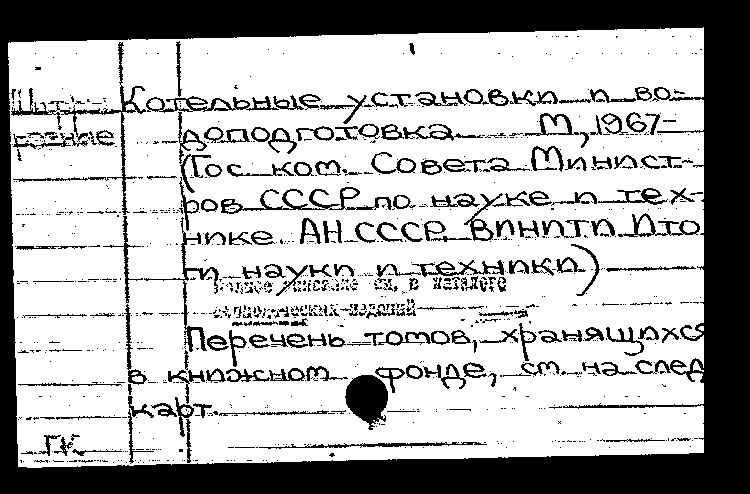 Котельные установки и во-
доподготовка. М, 1967-
(Гос. ком. Совета Минист-
ров СССР по науке и тех-
нике. АН СССР. ВИНИТИ. Ито
ги науки и техники)
Полное описание см. в каталоге
периодических изданий
Перечень томов, хранящихся
в книжном фонде, см. на след
карт.
Г.К.